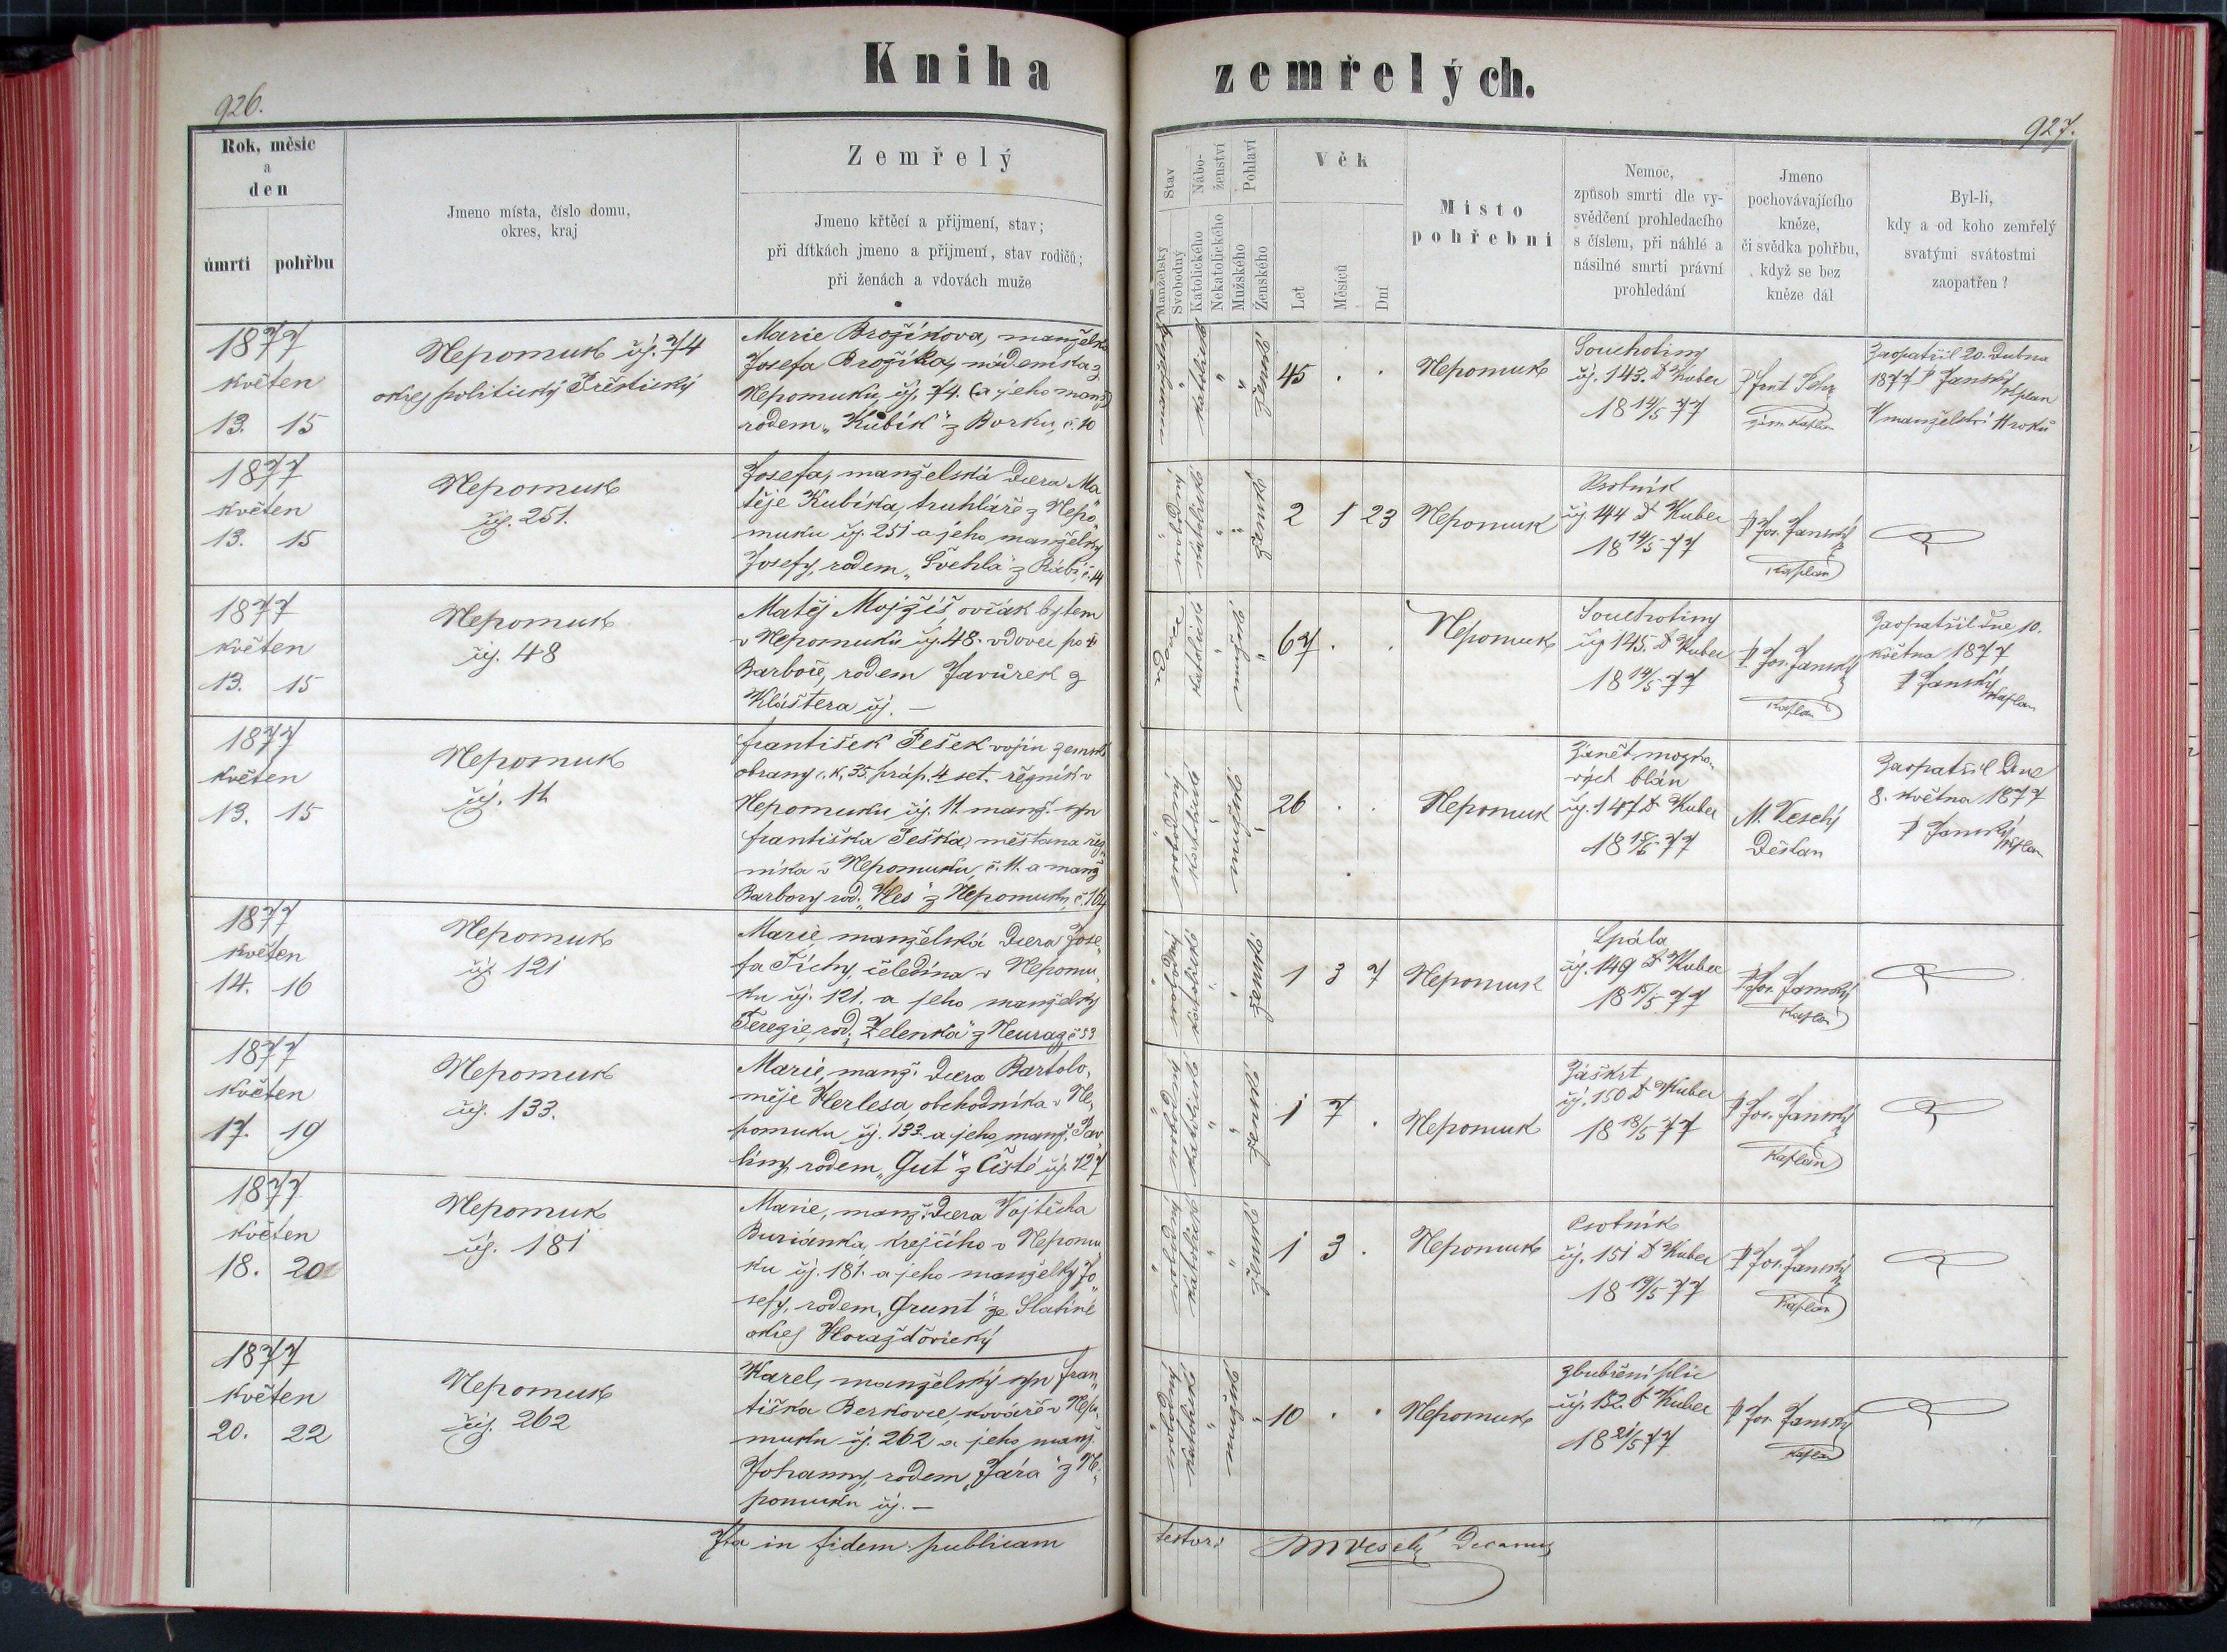 Kniha zemřelých.
926.
927.
Rok, měsíc
a
den
úmrtí
pohřbu
Jmeno místa, číslo domu,
okres, kraj
Zemřelý
Jmeno křtěcí a přijmení, stav;
při dítkách jmeno a přijmení, stav rodičů;
při ženách a vdovách muže
Stav
Manželský
Svobodný
Nábo-
ženství
Katolického
Nekatolického
Pohlaví
Mužského
Ženského
Věk
Let
Měsíců
Dní
Místo
pohřební
Nemoc,
způsob smrti dle vy-
svědčení prohledacího
s číslem, při náhlé a
násilné smrti právní
prohledání
Jmeno
pochovávajícího
kněze,
či svědka pohřbu,
když se bez
kněze dál
Byl-li,
kdy a od koho zemřelý
svatými svátostmi
zaopatřen?
1877
květen
13. 15
Nepomuk čj. 74
okres politický Přeštický
Marie Brožíkova, manželka
Josefa Brožíka, nádeníka z
Nepomuku, čj. 74. (a jeho manž)
rodem „Kubík" z Borku, č. 10
katolické
ženské
45 . .
Nepomuk
Souchotiny
čj. 143. D Kuber
18 14/5 77
kaplan
Zaopatřil 20. Dubna
1877 P Janský kaplan
V manželství 11 roků
1877
květen
13. 15
Nepomuk
čj. 251.
Josefa, manželská dcera Ma
těje Kubíka, truhláře z Nepo
muku čj. 251 a jeho manželky
Josefy, rodem „Švehla" z Rábí, č. 14
svobodný
katolické
ženské
2 1 23
Nepomuk
Psotník
čj 144 D Kuber
18 14/5 77
P Jos. Janský
kaplan
1877
květen
13. 15
Nepomuk
čj. 48
Matěj Mojžíš, ovčák bytem
v Nepomuku čj. 48. vdovec po †
Barboře, rodem Javůrek z
Kláštera čj. —
katolické
mužské
67 . .
Nepomuk
Souchotiny
čj 145. D Kuber
18 14/5 77
P Jos. Janský
kaplan
Zaopatřil dne 10.
května 1877
P Janský kaplan
1877
květen
13. 15
Nepomuk
čj. 11
František Pešek vojín zemské
obrany c. k. 35. práp. 4 set. řezník v
Nepomuku čj. 11. manž. syn
Františka Peška, měšťana řez
níka v Nepomuku, č. 11. a manž
Barbory rod. „Kles" z Nepomuku, č. 164
svobodný
katolické
mužské
26 . .
Nepomuk
Zánět mozko-
vých blán
čj. 147 D Kuber
18 15/5 77
M. Veselý
Děkan
Zaopatřil dne
8. května 1877
P Janský kaplan
1877
květen
14. 16
Nepomuk
čj. 121
Marie, manželská dcera Jose
fa Tichý, čeledína v Nepomu
ku čj. 121. a jeho manželky
Terezie, rod. „Zelenka" z Neuraz č 53
svobodný
katolické
ženské
1 3 7
Nepomuk
Spála
čj. 149 D Kuber
18 15/5 77
P Jos. Janský
kaplan
1877
květen
17. 19
Nepomuk
čj. 133.
Marie, manž. dcera Bartolo,
měje Herlesa, obchodníka v Ne,
pomuku čj. 133. a jeho manž. Pav
líny, rodem „Gut" z Čisté čj. 127
svobodný
katolické
ženské
1 7 .
Nepomuk
Záškrt
čj. 150 D Kuber
18 18/5 77
P Jos. Janský
kaplan
1877
květen
18. 20
Nepomuk
čj. 181
Marie, manž. dcera Vojtěcha
Buriánka, krejčího v Nepomu
ku čj. 181. a jeho manželky Jo
sefy, rodem „Grunt" ze Slatiné
okres Horažďovický
svobodný
katolické
ženské
1 3 .
Nepomuk
Psotník
čj. 151 D Kuber
18 19/5 77
P Jos. Janský
kaplan
1877
květen
20. 22
Nepomuk
čj. 262
Karel, manželský syn Fran
tiška Berkovce, kováře v Nepo,
muku čj. 262 a jeho manž.
Johanny, rodem „Jára" z Ne
pomuku čj. —
svobodný
katolické
mužské
10 . .
Nepomuk
Zbubření plic
čj. 152. D Kuber
18 21/5 77
P Jos. Janský
kaplan
Ita in fidem publicam testor: M Veselý Decanus